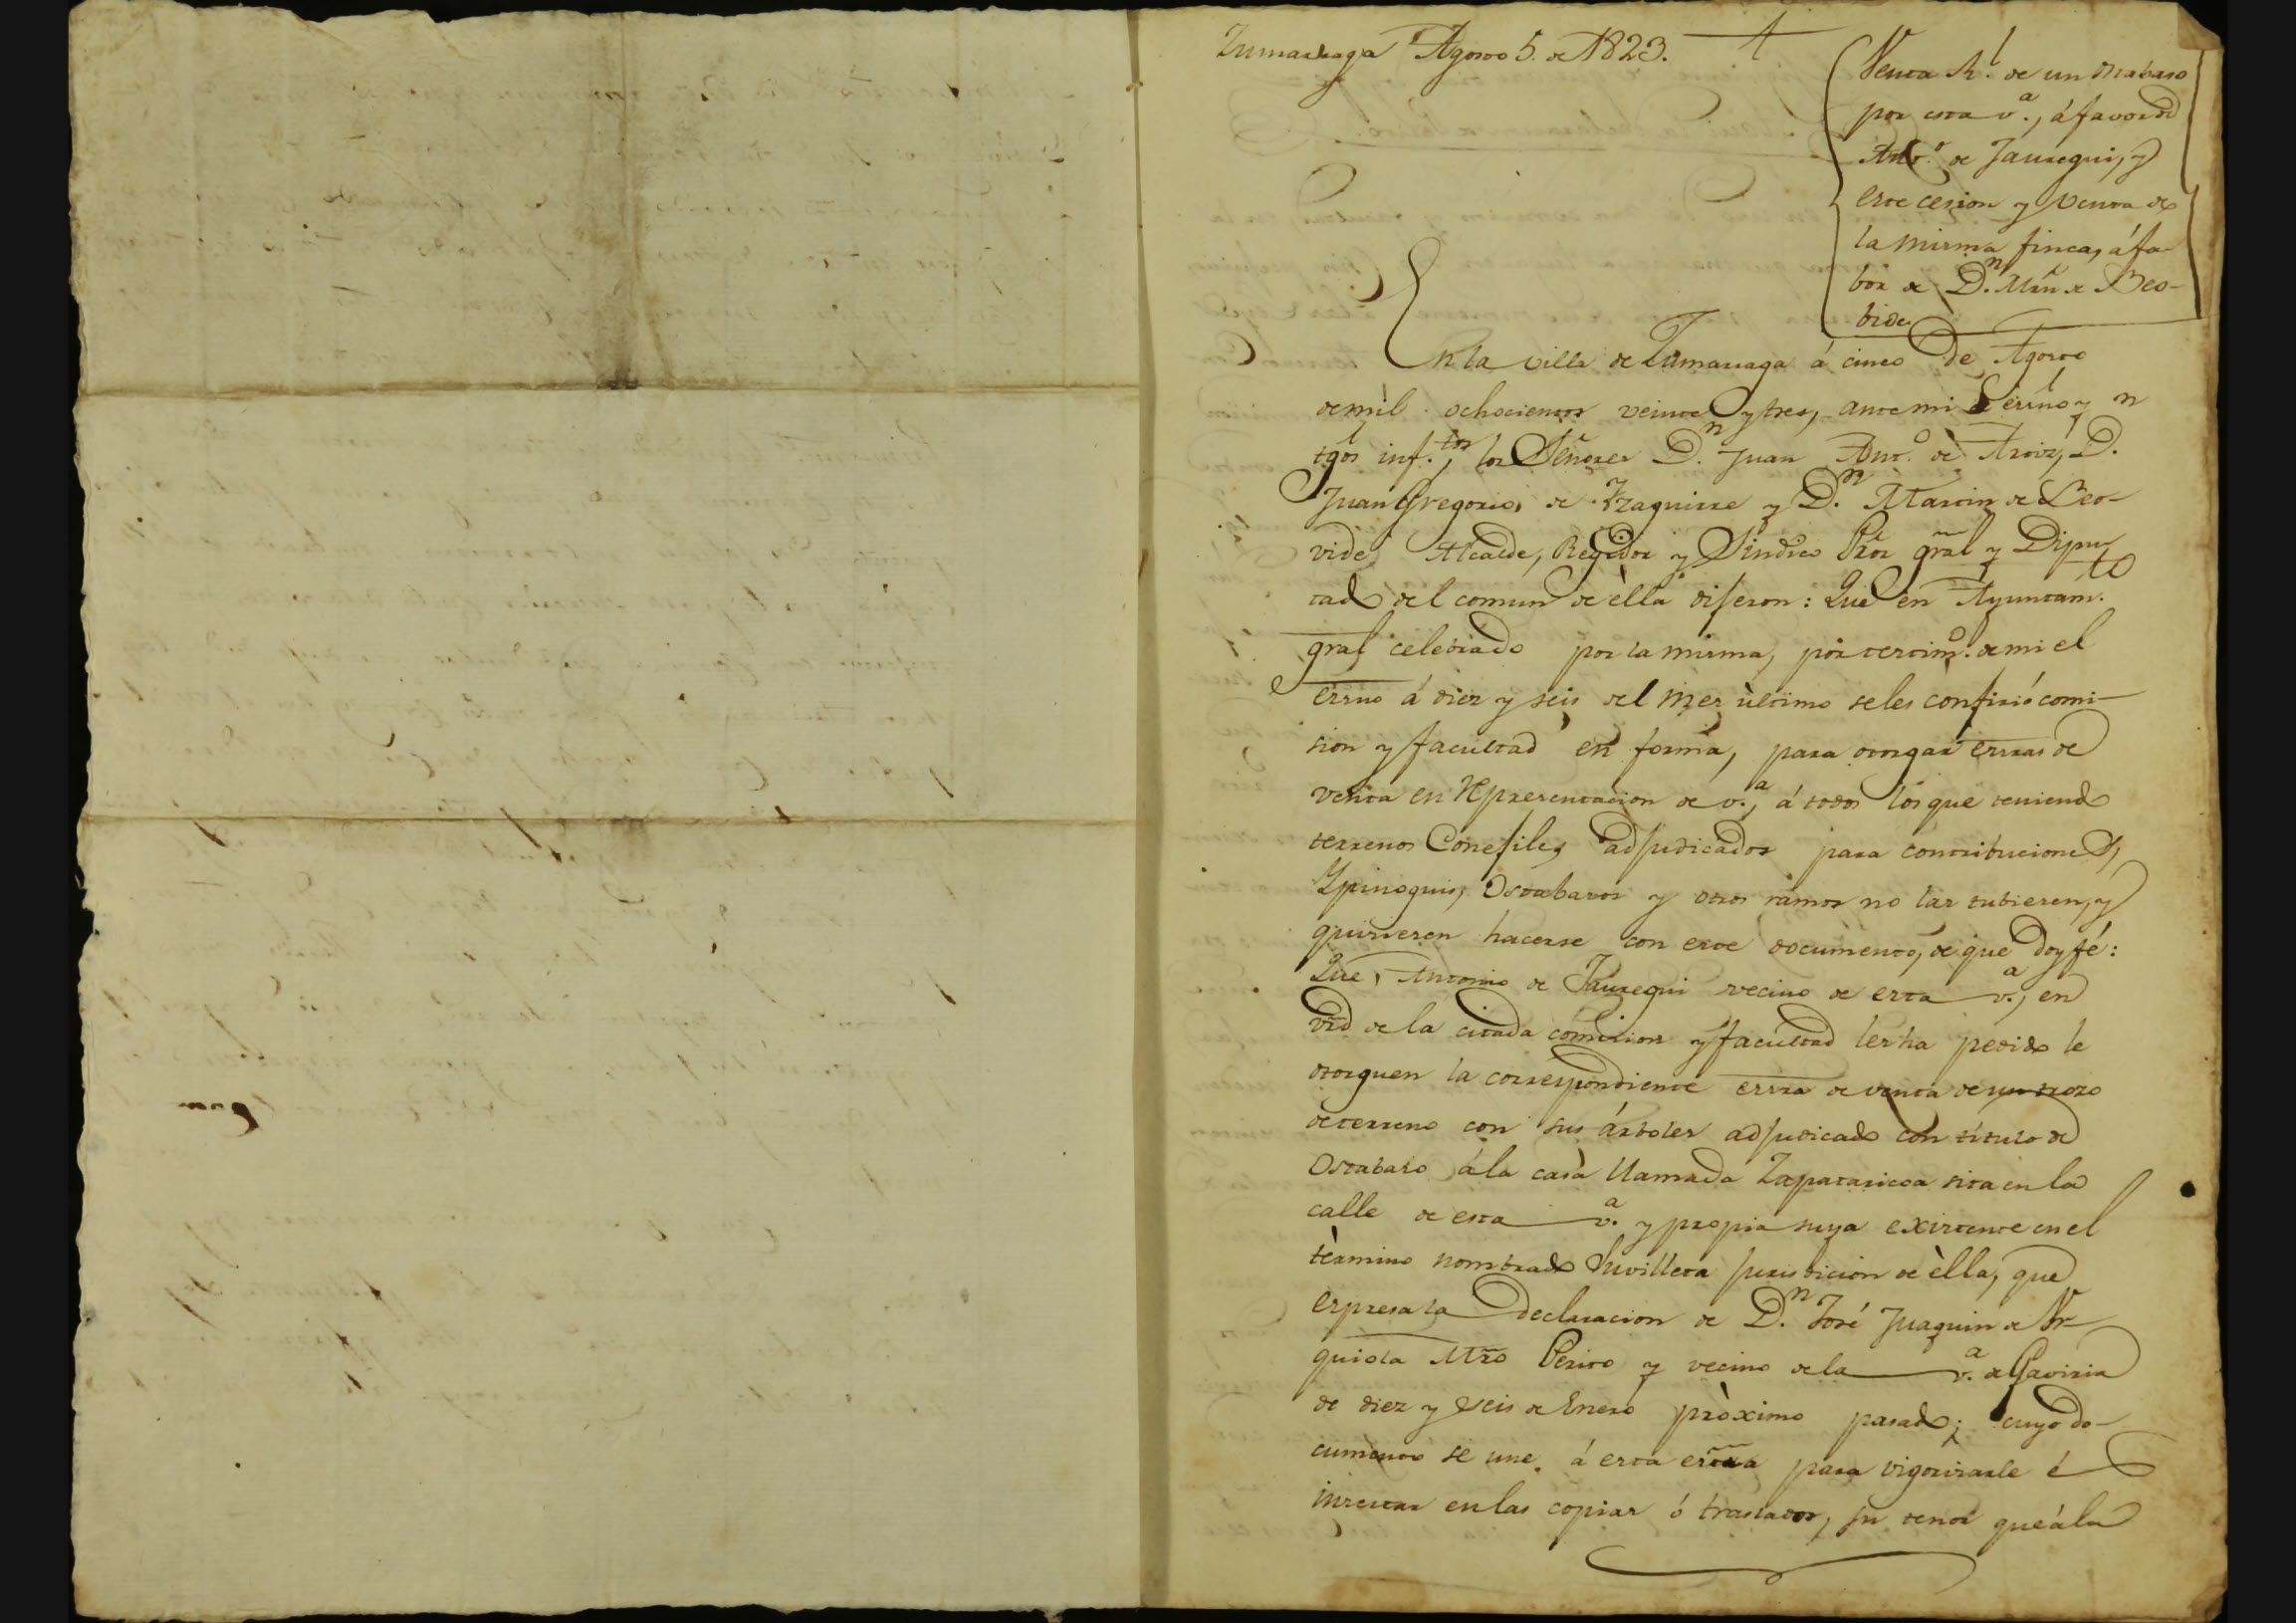 Zumarraga Agosto 5 de 1823.
Venta Rl. de un ostabaso
por esta v.a, á favor de
Anto. de Jauregui, y
este cesion y venta de
la misma finca, á fa-
bor de Dn. Mrn. de Beo-
bide
En la villa de Zumarraga á cinco de Agosto
de mil ochocientos veinte y tres, ante mi el esrino y
tgos inf.tos, los Señores Dn. Juan Anto. de Aroiz, Dn.
Juan Gregorio de Yzaguirre y Dn. Martin de Beo-
vide Alcalde, Regidor y Sindico Pror gral y Dipu-
tado del comun de èlla dijeron: Que en Ayuntam.to
gral celebrado por la misma, por testim.o de mi el
esrno á diez y seis del mes ùltimo se les confirió comi-
sion y facultad en forma, para otorgar esrras de
venta en representacion de v.a, á todos los que teniendo
terrenos Concejiles adjudicados para contribuciones,
Ypinoquis, Ostabasos y otros ramos no las tubieren, y
quisieren hacerse con este documento, de que doy fé:
Que Antonio de Jauregui vecino de esta v.a, en
vrd de la citada comision y facultad les ha pedido le
otorguen la correspondiente esrra de venta de un trozo
de terreno con sus árboles adjudicado con título de
Ostabaso á la casa llamada Zapataricoa sita en la
calle de esta v.a y propia suya existente en el
tèrmino nombrado jurisdicion de èlla, que
espresa la declaracion de Dn. José Juaquin de Ur-
quiola Mtro Perito y vecino de la v.a de Gaviria
de diez y seis de Enero pròximo pasado; cuyo do-
cumento se une á esta esrra para vigorizarle é
insertar en las copias ó traslados, su tenor que á la